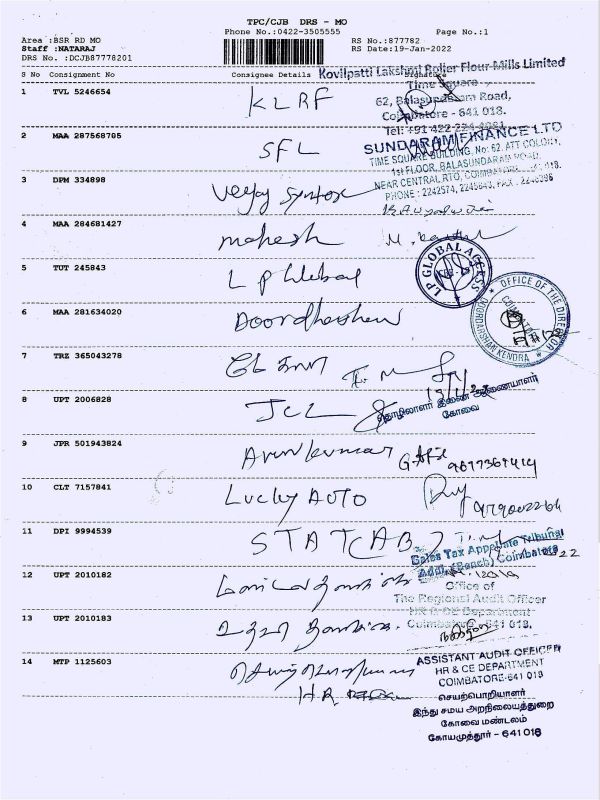 TPC/CJB DRS - MO
Phone No.:0422-3505555 Page No.:1
Area :BSR RD MO RS No.:877782
Staff :NATARAJ RS Date:19-Jan-2022
DRS No. :DCJB87778201
S No Consignment No Consignee Details Signature
Kovilpatti Lakshmi Roller Flour Mills Limited
Time Square
62, Balasundaram Road,
Coimbatore - 641 018.
1 TVL 5246654 KLRF
Tel: +91 422
SUNDARAM FINANCE LTD
TIME SQUARE BUILDING, No: 62, ATT COLONY,
1st FLOOR, BALASUNDARAM ROAD,
NEAR CENTRAL RTO, COIMBATORE
PHONE : 2242574,
2 MAA 287568705 SFL
3 DPM 334898 Veejay Syntex
4 MAA 284681427 mahesh
5 TUT 245843 L P Global
LP GLOBAL ACCESS
6 MAA 281634020 Doordharshan
OFFICE OF THE DIRECTOR
DOORDARSHAN KENDRA
COIMBATORE
7 TRZ 365043278
8 UPT 2006828 JCL
தொழிலாளர் இணை ஆணையாளர்
கோவை
9 JPR 501943824 Arunkumar
10 CLT 7157841 Lucky AUTO
11 DPI 9994539 STAT(AB)
Sales Tax Appellate Tribunal
Addl. (Bench) Coimbatore
12 UPT 2010182
Office of
The Regional Audit Officer
HR & CE Department
Coimbatore - 641 018.
13 UPT 2010183
14 MTP 1125603
ASSISTANT AUDIT OFFICER
HR & CE DEPARTMENT
COIMBATORE-641 018
செயற்பொறியாளர்
இந்து சமய அறநிலையத்துறை
கோவை மண்டலம்
கோயமுத்தூர் - 641 018